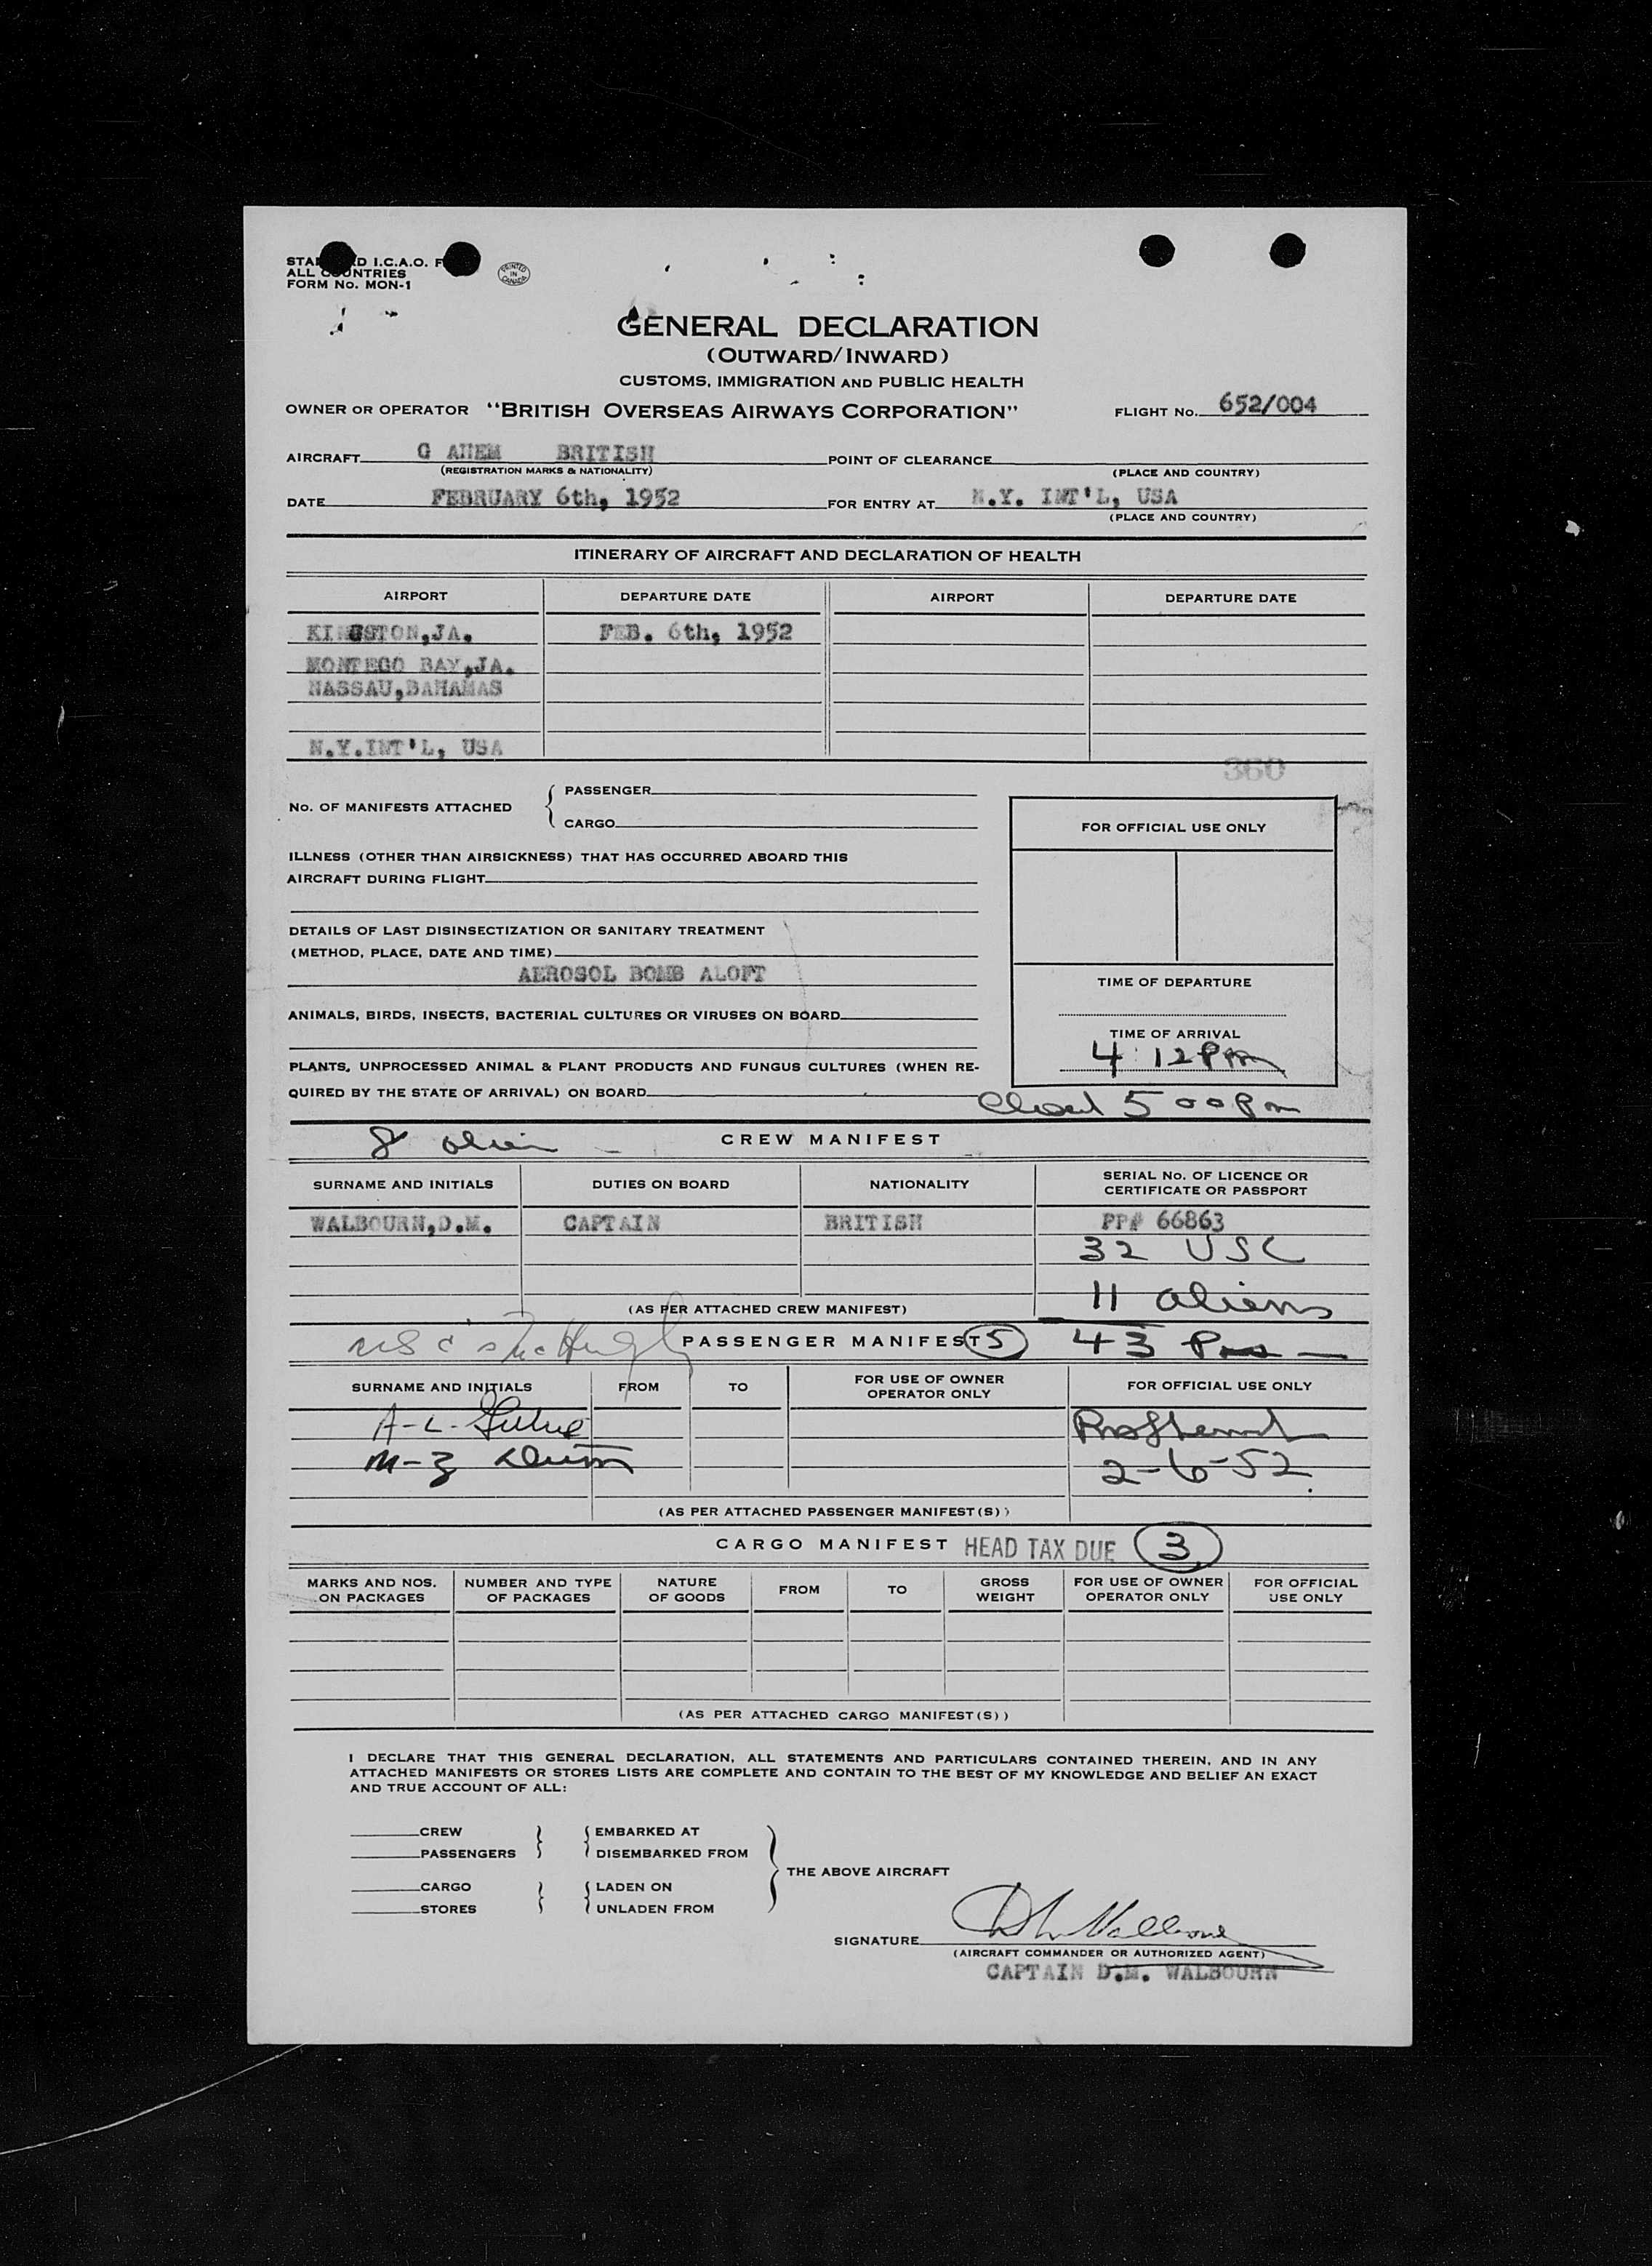 STA D I.C.A.O. F
ALL COUNTRIES
FORM No. MON-1
PRINTED IN CANADA
GENERAL DECLARATION
(OUTWARD/INWARD)
CUSTOMS, IMMIGRATION AND PUBLIC HEALTH
OWNER OR OPERATOR "BRITISH OVERSEAS AIRWAYS CORPORATION" FLIGHT No. 652/004
AIRCRAFT G AHEM BRITISH POINT OF CLEARANCE
(REGISTRATION MARKS & NATIONALITY) (PLACE AND COUNTRY)
DATE FEBRUARY 6th, 1952 FOR ENTRY AT N.Y. INT'L, USA
(PLACE AND COUNTRY)
ITINERARY OF AIRCRAFT AND DECLARATION OF HEALTH
AIRPORT DEPARTURE DATE AIRPORT DEPARTURE DATE
KINGSTON,JA. FEB. 6th, 1952
MONTEGO BAY,JA.
NASSAU,BAHAMAS
N.Y.INT'L, USA
360
No. OF MANIFESTS ATTACHED { PASSENGER
CARGO
FOR OFFICIAL USE ONLY
ILLNESS (OTHER THAN AIRSICKNESS) THAT HAS OCCURRED ABOARD THIS
AIRCRAFT DURING FLIGHT
DETAILS OF LAST DISINSECTIZATION OR SANITARY TREATMENT
(METHOD, PLACE, DATE AND TIME)
AEROSOL BOMB ALOFT
TIME OF DEPARTURE
ANIMALS, BIRDS, INSECTS, BACTERIAL CULTURES OR VIRUSES ON BOARD
TIME OF ARRIVAL
4:12 Pm
PLANTS, UNPROCESSED ANIMAL & PLANT PRODUCTS AND FUNGUS CULTURES (WHEN RE-
QUIRED BY THE STATE OF ARRIVAL) ON BOARD
5 00 Pm
8 CREW MANIFEST
SURNAME AND INITIALS DUTIES ON BOARD NATIONALITY SERIAL No. OF LICENCE OR CERTIFICATE OR PASSPORT
WALBOURN,D.M. CAPTAIN BRITISH PP# 66863
32 USC
11 aliens
(AS PER ATTACHED CREW MANIFEST)
PASSENGER MANIFEST 5 43
SURNAME AND INITIALS FROM TO FOR USE OF OWNER OPERATOR ONLY FOR OFFICIAL USE ONLY
A-L-
M-Z
2-6-52
(AS PER ATTACHED PASSENGER MANIFEST(S))
CARGO MANIFEST HEAD TAX DUE 3
MARKS AND NOS. ON PACKAGES NUMBER AND TYPE OF PACKAGES NATURE OF GOODS FROM TO GROSS WEIGHT FOR USE OF OWNER OPERATOR ONLY FOR OFFICIAL USE ONLY
(AS PER ATTACHED CARGO MANIFEST(S))
I DECLARE THAT THIS GENERAL DECLARATION, ALL STATEMENTS AND PARTICULARS CONTAINED THEREIN, AND IN ANY
ATTACHED MANIFESTS OR STORES LISTS ARE COMPLETE AND CONTAIN TO THE BEST OF MY KNOWLEDGE AND BELIEF AN EXACT
AND TRUE ACCOUNT OF ALL:
CREW EMBARKED AT
PASSENGERS DISEMBARKED FROM
THE ABOVE AIRCRAFT
CARGO LADEN ON
STORES UNLADEN FROM
SIGNATURE
(AIRCRAFT COMMANDER OR AUTHORIZED AGENT)
CAPTAIN D.M. WALBOURN